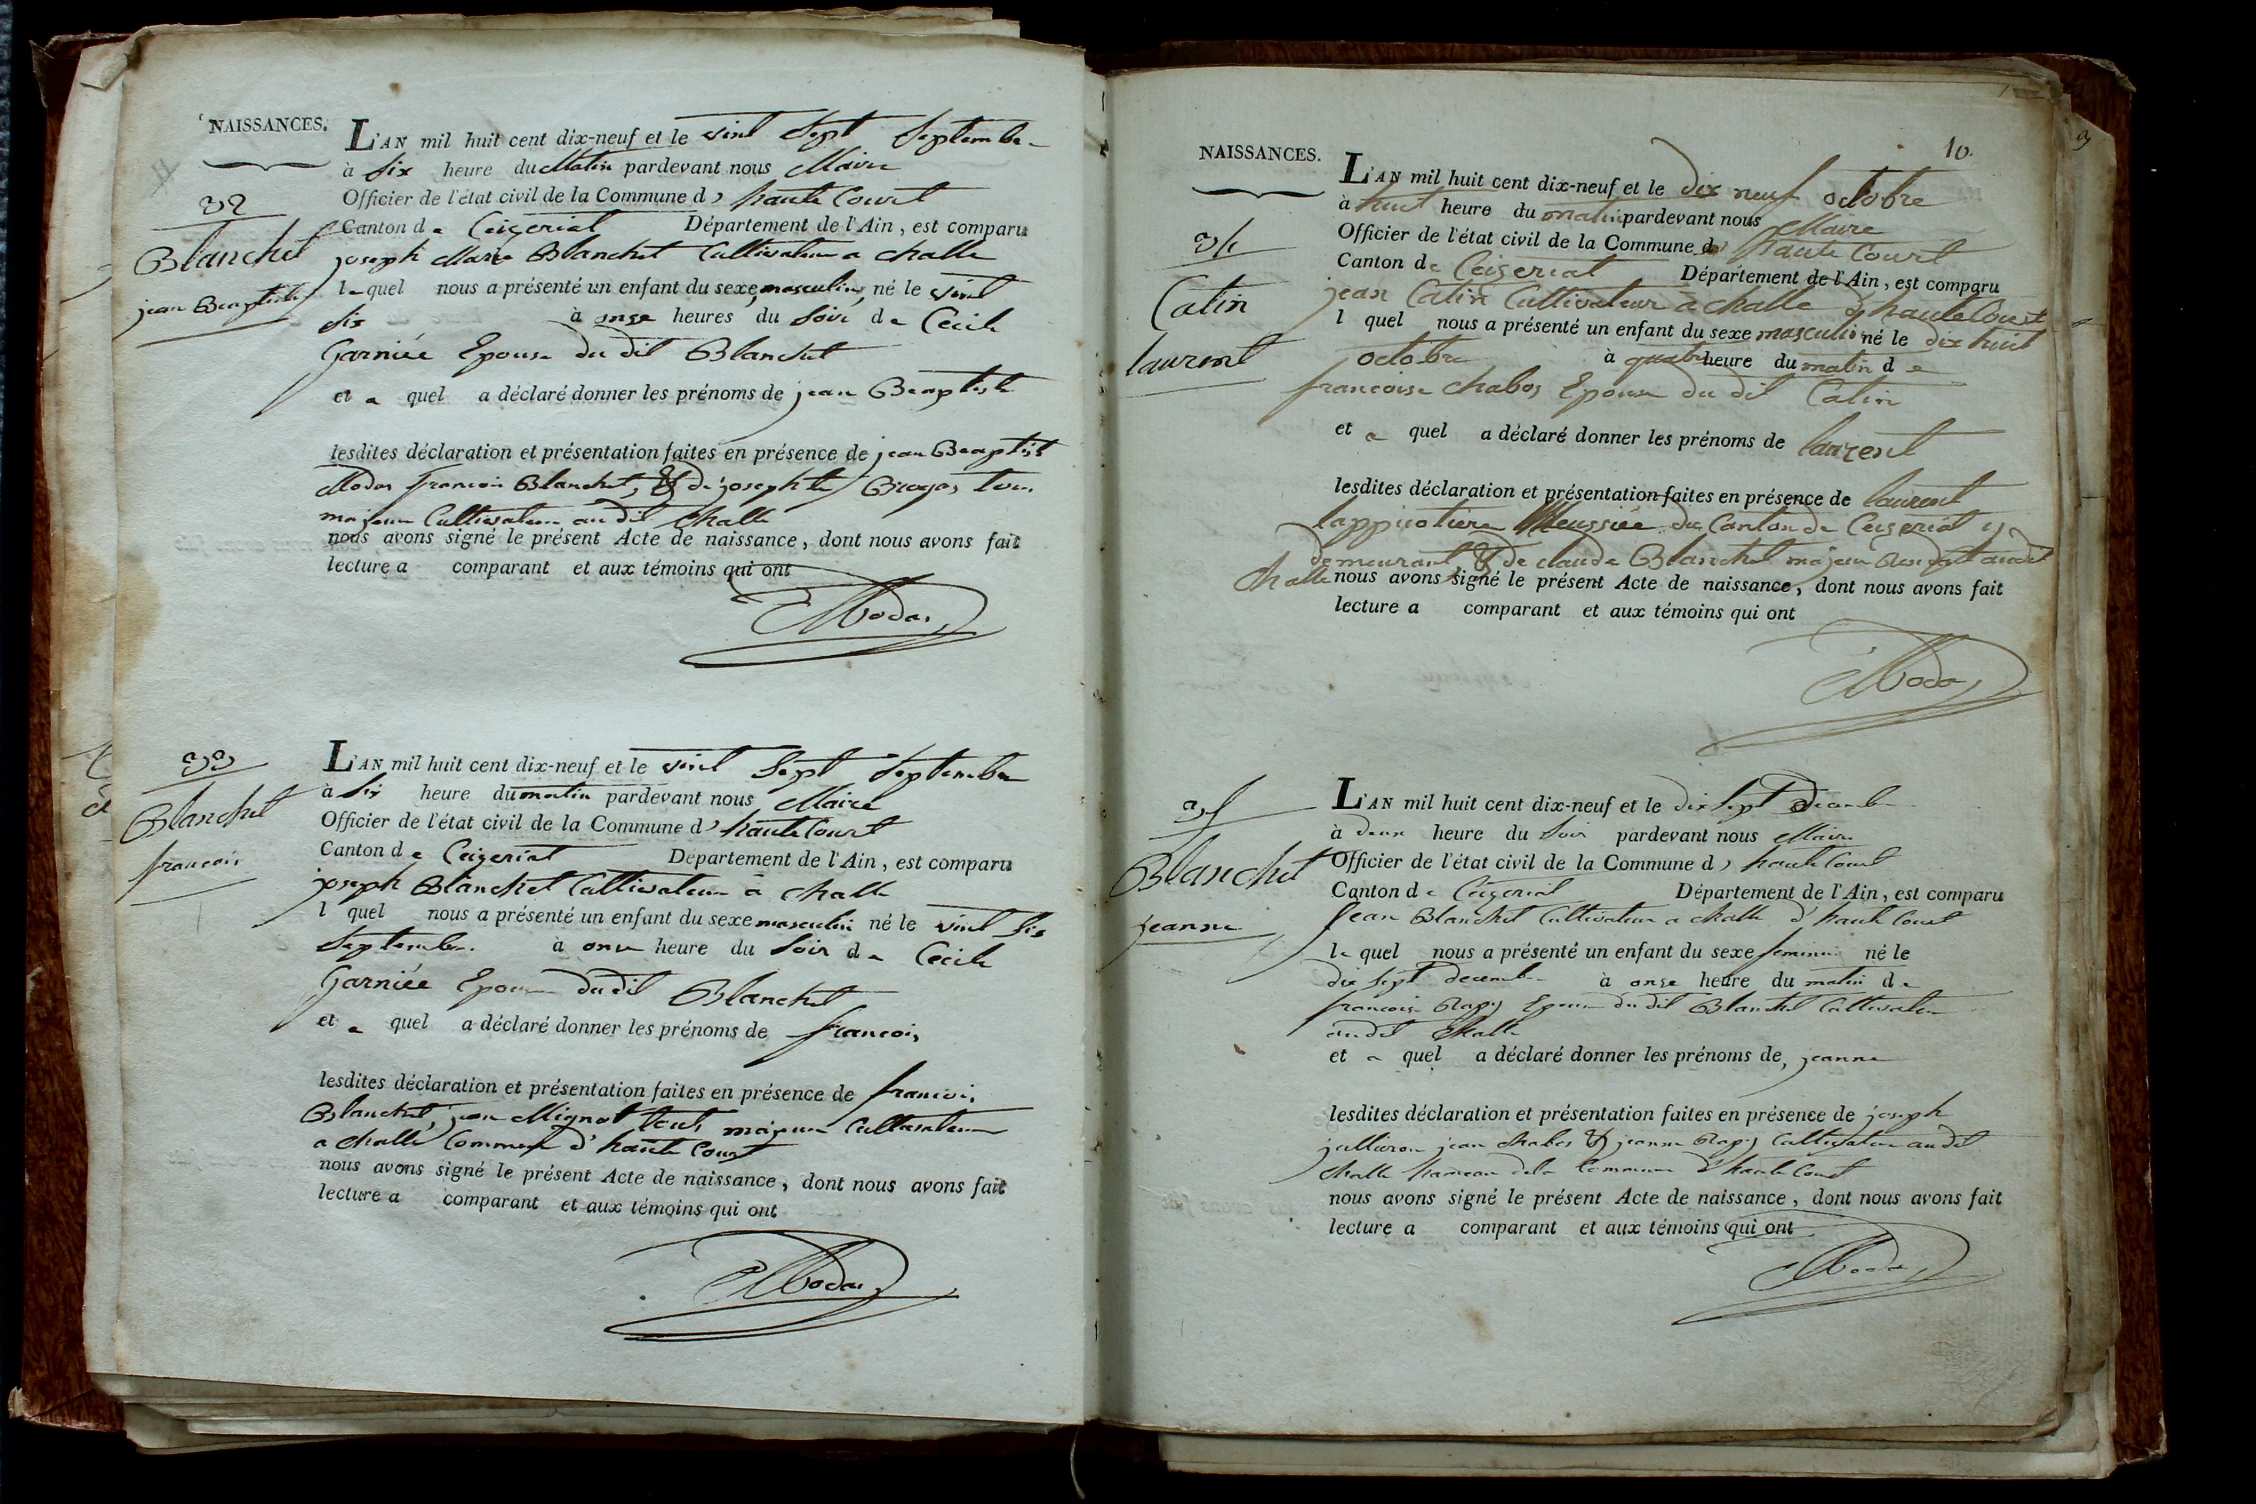 NAISSANCES.
L'AN mil huit cent dix-neuf et le vint Sept Septembre
à Six heure du Matin pardevant nous Maire
Officier de l'état civil de la Commune d haute Court
Canton de Ceizeriat Département de l'Ain, est comparu
32
Blanchet
jean Beaptiste
joseph Marie Blanchet Cultivateur a Challe
lequel nous a présenté un enfant du sexe masculin né le vint
six à onze heures du Soir de Cecile
Garniée Epouse du dit Blanchet
et a quel a déclaré donner les prénoms de jean Beaptiste
lesdites déclaration et présentation faites en présence de jean Beaptist
Modas francois Blanchet, & de joseph tous
majeur Cultivateur au dit Challe
nous avons signé le présent Acte de naissance, dont nous avons fait
lecture a comparant et aux témoins qui ont
Modas
33
Blanchet
francois
L'AN mil huit cent dix-neuf et le vint Sept Septembre
à Six heure du matin pardevant nous Maire
Officier de l'état civil de la Commune d haute Court
Canton de Ceizeriat Département de l'Ain, est comparu
joseph Blanchet Cultivateur a Challe
l quel nous a présenté un enfant du sexe masculin né le vint Six
Septembre à onze heure du Soir de Cecile
Garniée Epouse du dit Blanchet
et a quel a déclaré donner les prénoms de francois
lesdites déclaration et présentation faites en présence de francois
Blanchet jean Mignot tous majeur Cultivateur
a Challe Commune d'haute Court
nous avons signé le présent Acte de naissance, dont nous avons fait
lecture a comparant et aux témoins qui ont
Modas
10.
NAISSANCES.
34
Catin
laurent
L'AN mil huit cent dix-neuf et le dix neuf octobre
à huit heure du matin pardevant nous Maire
Officier de l'état civil de la Commune d haute Court
Canton de Ceizeriat Département de l'Ain, est comparu
jean Catin Cultivateur a Challe d haute Court
l quel nous a présenté un enfant du sexe masculin né le dix huit
octobre à quatre heure du matin de
francoise Chabos Epouse du dit Catin
et a quel a déclaré donner les prénoms de laurent
lesdites déclaration et présentation faites en présence de laurent
du Canton de Ceizeriat y
demeurant & de claude Blanchet majeur audit
Challe nous avons signé le présent Acte de naissance, dont nous avons fait
lecture a comparant et aux témoins qui ont
Modas
35
Blanchet
jeanne
L'AN mil huit cent dix-neuf et le dix Sept Decembre
à deux heure du Soir pardevant nous Maire
Officier de l'état civil de la Commune d haute Court
Canton de Ceizeriat Département de l'Ain, est comparu
Jean Blanchet Cultivateur a Challe d'haute Court
le quel nous a présenté un enfant du sexe feminin né le
dix Sept decembre à onze heure du matin de
francoise Epouse du dit Blanchet Cultivateur
au dit Challe
et a quel a déclaré donner les prénoms de jeanne
lesdites déclaration et présentation faites en présence de joseph
jean Chabos & jeanne Cultivateur au dit
Challe hameau de la Commune d'haute Court
nous avons signé le présent Acte de naissance, dont nous avons fait
lecture a comparant et aux témoins qui ont
Modas